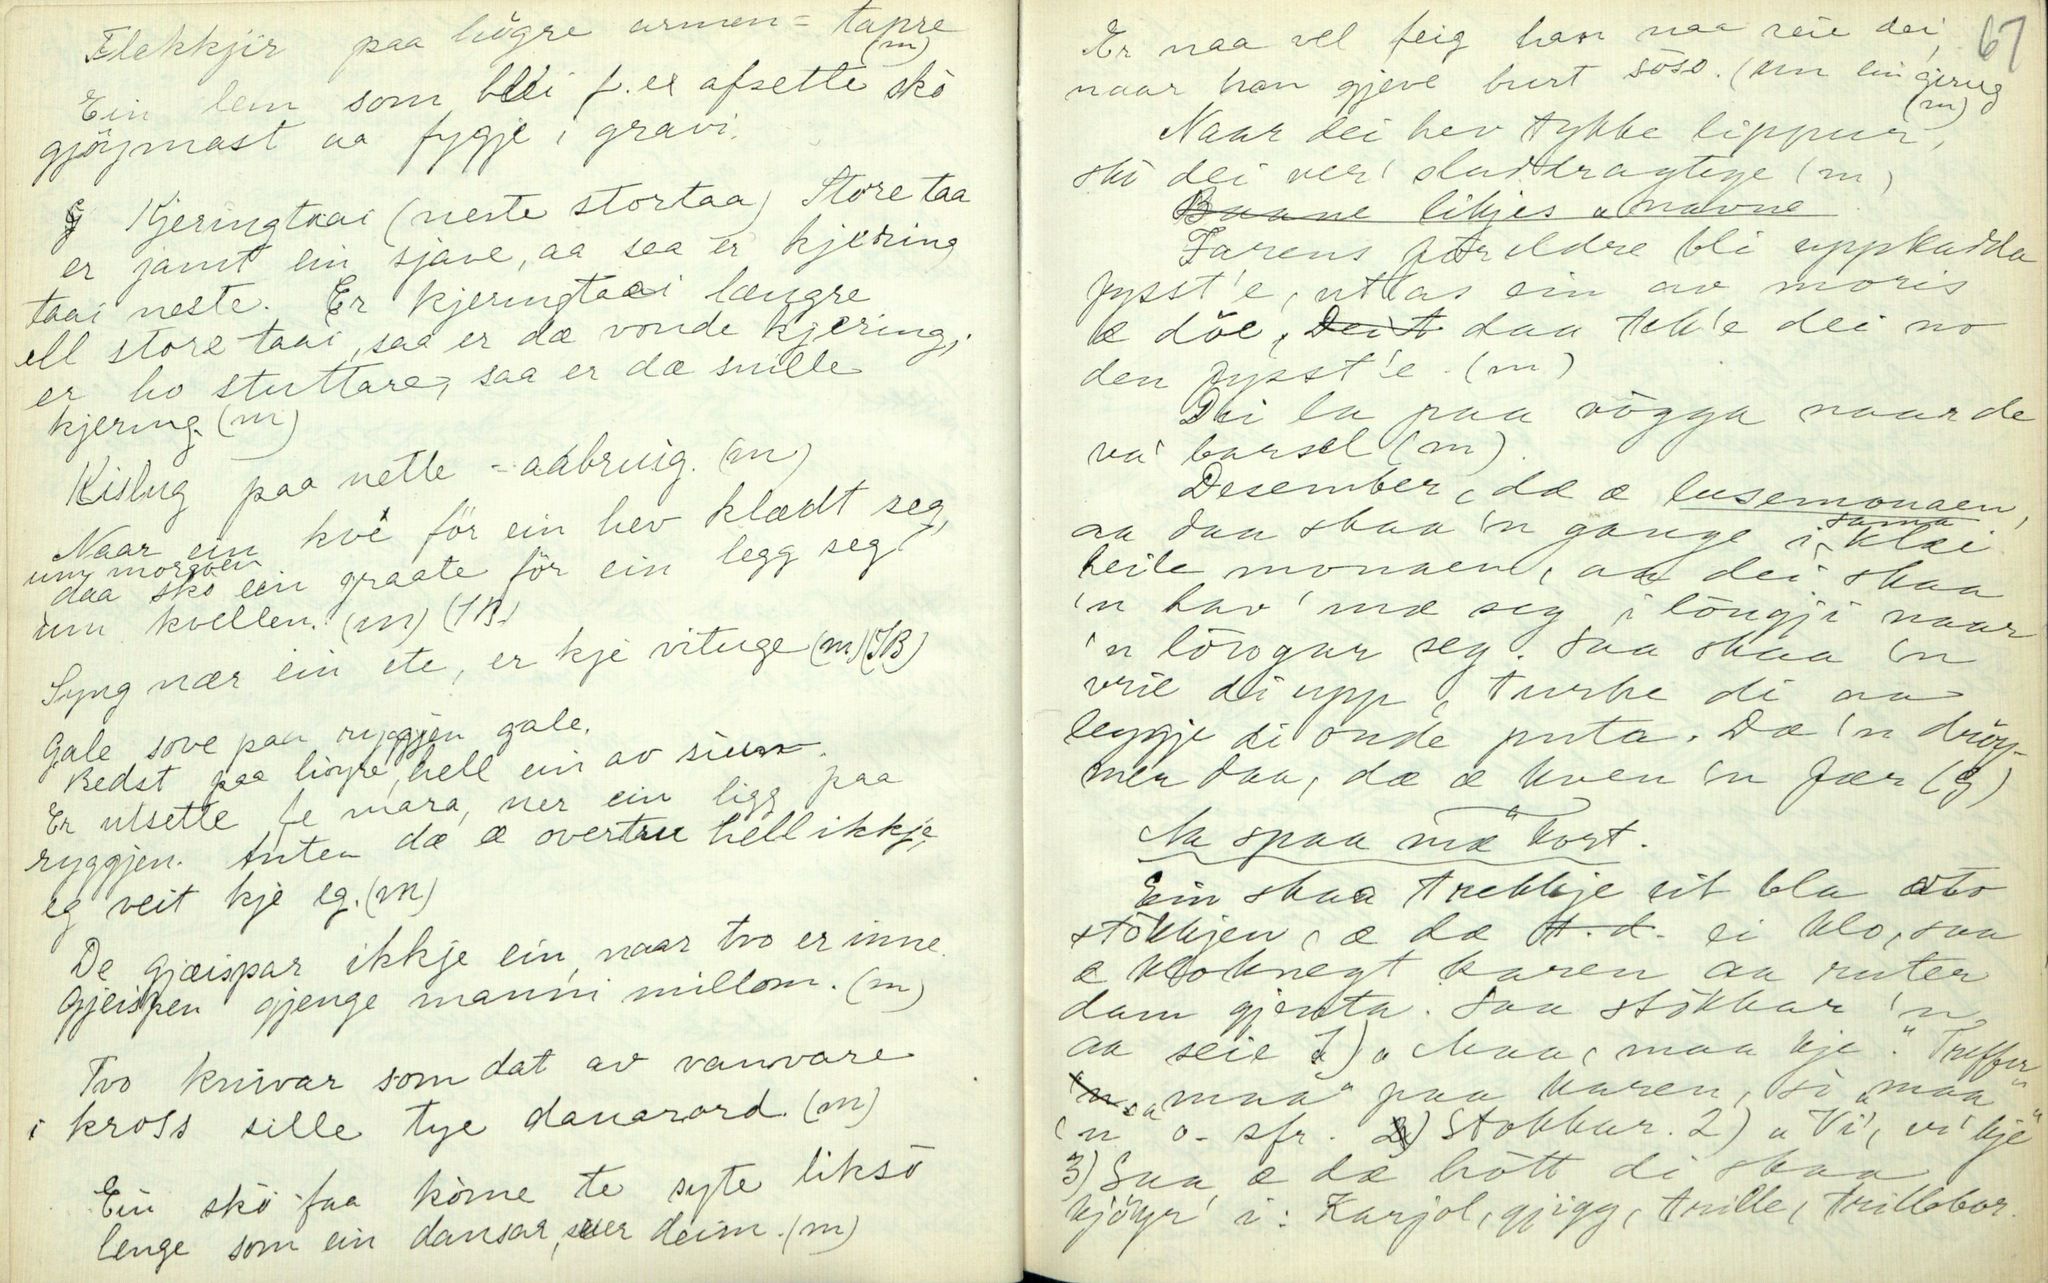 Flekkjir paa högre armen = tapre
(m)
Ein lem som blei f. ex afsette skö
gjöymast aa fygje i gravi.
Kjeringtaai (neste stortaa) Store taa
er jamt ein sjave, aa saa er kjering
taai neste. Er kjeringtaai længre
ell store taai, saa er dæ vonde kjering,
er ho stuttare, saa er dæ snille
kjering. (m)
Kislug paa nette = aabruig. (m)
Naar ein kve för ein hev klædt seg,
um morgoen
daa skö ein graate för ein legg seg
um kvellen. (m) (TB)
Syng nær ein ete, er kje vituge (m) (TB)
Gale sove paa ryggjen gale.
Bedst paa högre, hell ein av sieun.
Er utsette fe mara, ner ein ligg paa
ryggjen. Anten dæ æ overtru hell ikkje,
eg veit kje eg. (m)
De gjæispar ikkje ein, naar tvo er inne
Gjeispen gjenge manni millom. (m)
Tvo knivar som dat av vanvare
i kross sille tye danarord. (m)
Ein skö faa köme te syte liksö
lenge som ein dansar, suer deim. (m)
67
Er naa vel feig han naa seie dei,
naar han gjeve burt söso. (um ein gjerug
(m)
Naar dei hev tykke lippur,
skö dei ver' sladdragtige (m)
Baane likjes a navne
Farens foreldre bli uppkadda
fysst'e, uttas ein av moris
æ döe, Dei t daa tek'e dei no
den fysst'e. (m)
Dei la paa vögga naar de
va' barsel (m).
Desember, dæ æ lusemonaen,
aa daa skaa 'n gange i sama klæi
heile monaen, aa dei skaa
'n hav' mæ seg i löugji naar
'n löugar seg. Saa skaa 'n
vrie di upp, turke di aa
leggje di onde puta. Dæ 'n dröy-
mer daa, dæ æ kven 'n fær (g)
Aa spaa mæ kort.
Ein skaa trekkje eit bla ato
stökkjen, æ dæ t.d. ei klo, saa
æ kloknegt karen aa ruter
dam gjenta. Saa stökkar 'n
aa seie 1) „Maa, maa kje". Treffer
'n „maa" paa karen, so „maa
'n" o. sfr. 2) Stokkar. 2) „Vi', vi' kje"
3) Saa æ dæ hött di skaa
kjöyr' i: Karjol, gjigg, trille, trillebor.